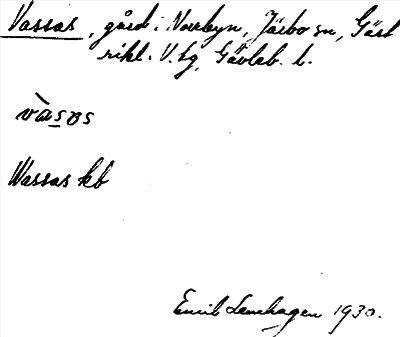 Vassas, gård i Norrbyn, Järbo sn, Gäst
rikl. V. tg, Gävleb. l.
vàsas
Wassas kb
Emil Lenhagen 1930.